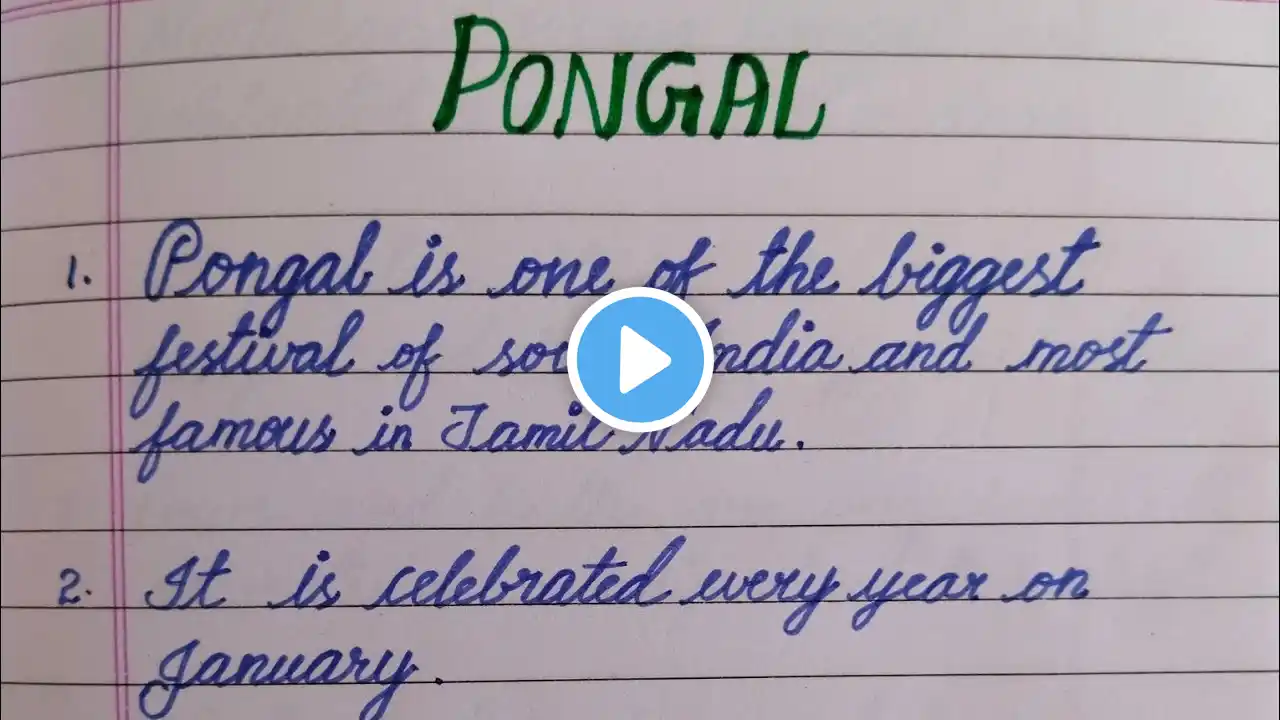 PONGAL
1. Pongal is one of the biggest
festival of India and most
famous in Tamil Nadu.
2. It is celebrated every year on
January.